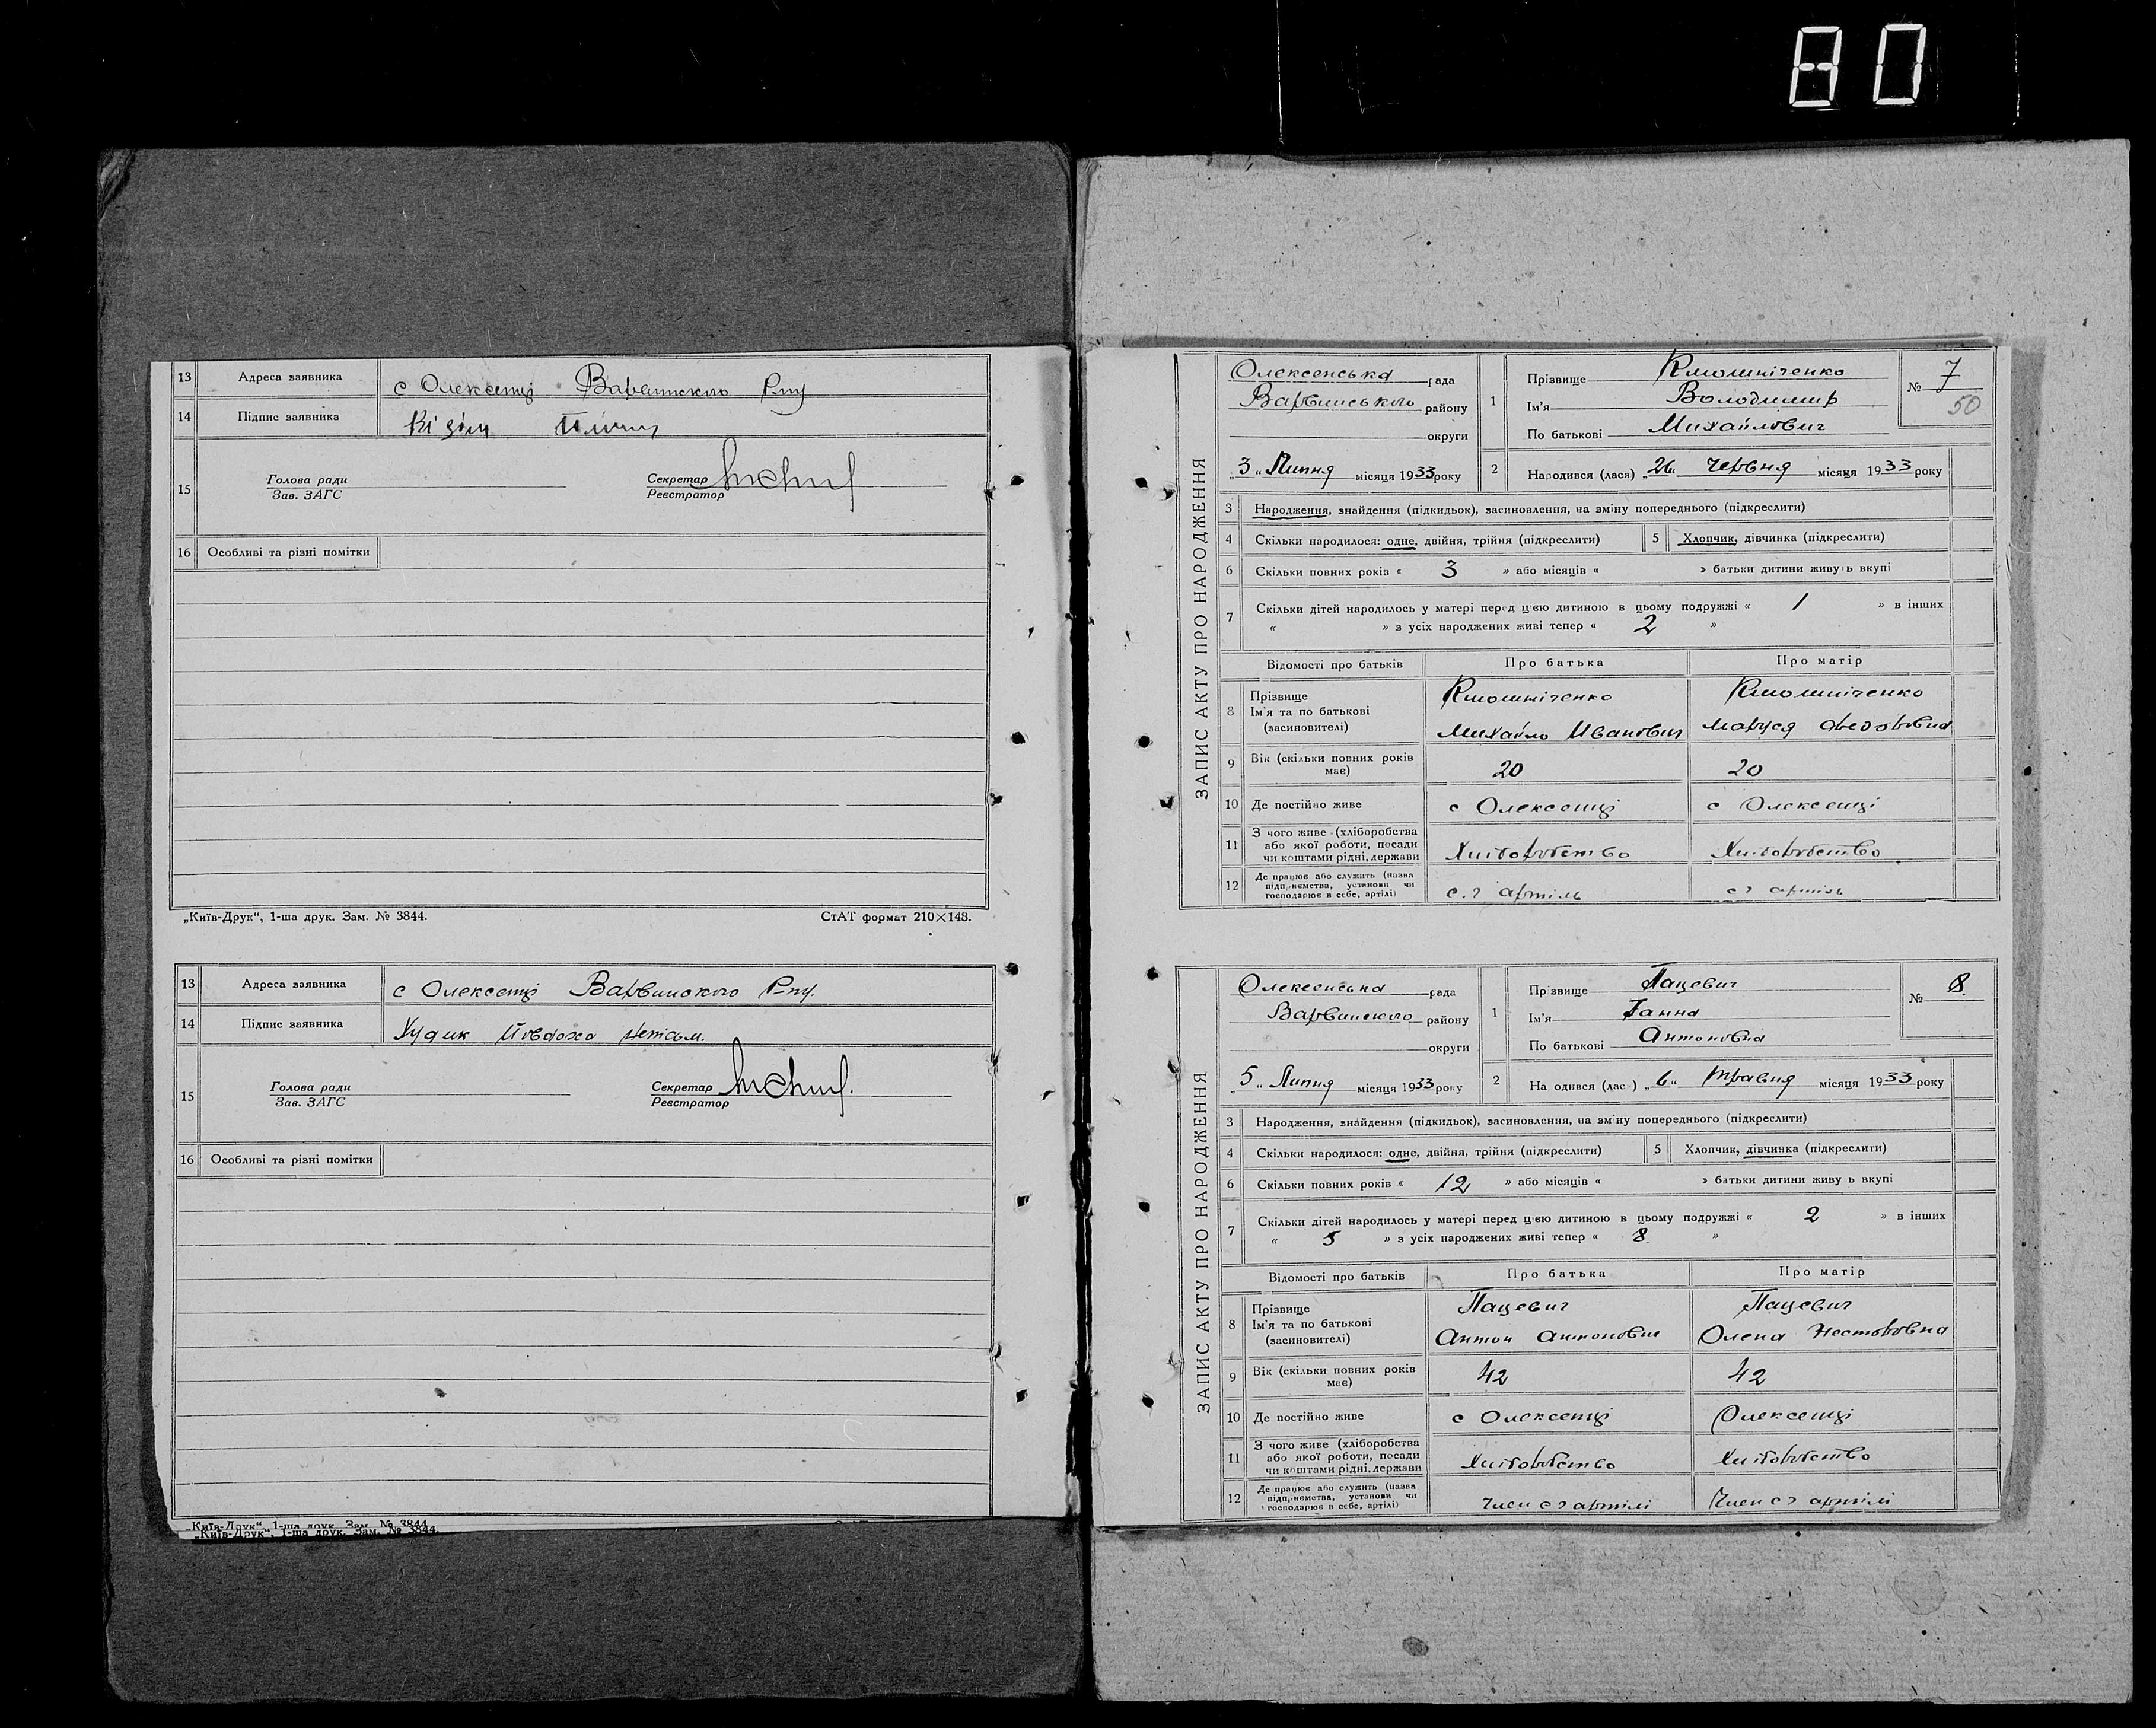 80
13 Адреса заявника с Олексенці Варвинского Рпу
14 Підпис заявника
15 Голова ради Секретар
Зав. ЗАГС Реєстратор
16 Особливі та різні помітки
„Київ-Друк“, 1-ша друк. Зам. № 3844. СтАТ формат 210×148.
13 Адреса заявника с Олексенці Варвинского Рпу.
14 Підпис заявника Худик
15 Голова ради Секретар
Зав. ЗАГС Реєстратор
16 Особливі та різні помітки
„Київ-Друк“, 1-ша друк. Зам. № 3844.
„Київ-Друк“, 1-ша друк. Зам. № 3844.
ЗАПИС АКТУ ПРО НАРОДЖЕННЯ
Олексенська рада
Варвинського району
округи
„3“ Липня місяця 1933 року
1 Прізвище Клюшніченко
Ім'я Володимир
По батькові Михайлович
№ 7
50
2 Народився (лася) „26“ Червня місяця 1933 року
3 Народження, знайдення (підкидьок), засиновлення, на зміну попереднього (підкреслити)
4 Скільки народилося: одне, двійня, трійня (підкреслити) 5 Хлопчик, дівчинка (підкреслити)
6 Скільки повних років « 3 » або місяців « » батьки дитини живуть вкупі
7 Скільки дітей народилось у матері перед цією дитиною в цьому подружжі « 1 » в інших
« » з усіх народжених живі тепер « 2 »
Відомості про батьків Про батька Про матір
8 Прізвище Клюшніченко Клюшніченко
Ім'я та по батькові
(засиновителі) Михайло Иванович Маруся Федоровна
9 Вік (скільки повних років має) 20 20
10 Де постійно живе с Олексенці с Олексенці
11 З чого живе (хліборобства
або якої роботи, посади
чи коштами рідні, держави Хліборобство Хліборобство
12 Де працює або служить (назва
підприємства, установи чи
господарює в себе, артілі) с.г. артіль с г артіль
ЗАПИС АКТУ ПРО НАРОДЖЕННЯ
Олексенська рада
Варвинского району
округи
„5“ Липня місяця 1933 року
1 Прізвище Пацевич
Ім'я Ганна
По батькові Антоновна
№ 8.
2 Народився (лася) „6“ Травня місяця 1933 року
3 Народження, знайдення (підкидьок), засиновлення, на зміну попереднього (підкреслити)
4 Скільки народилося: одне, двійня, трійня (підкреслити) 5 Хлопчик, дівчинка (підкреслити)
6 Скільки повних років « 12 » або місяців « » батьки дитини живуть вкупі
7 Скільки дітей народилось у матері перед цією дитиною в цьому подружжі « 2 » в інших
« 5 » з усіх народжених живі тепер « 8 »
Відомості про батьків Про батька Про матір
8 Прізвище Пацевич Пацевич
Ім'я та по батькові
(засиновителі) Антон Антонович Олена Несторовна
9 Вік (скільки повних років має) 42 42
10 Де постійно живе с Олексенці Олексенці
11 З чого живе (хліборобства
або якої роботи, посади
чи коштами рідні, держави Хліборобство Хліборобство
12 Де працює або служить (назва
підприємства, установи чи
господарює в себе, артілі) Член с г артілі Член с г артілі